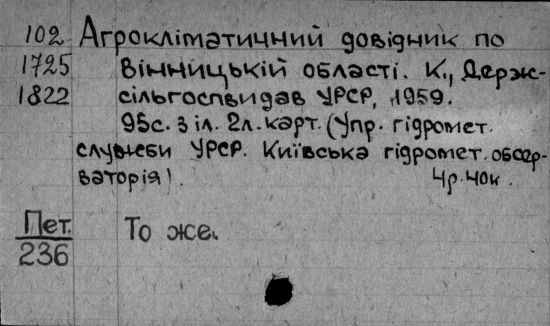 102 Агрокліматичний довідник по
1725 Вінницькій області. К., Держ-
1822 сільгоспвидав УРСР, 1959.
95с. з іл. 2л. карт. (Упр. гідромет.
служби УРСР. Київська гідромет. обсер-
ваторія).
4р. 40к.
Пет. То же.
236